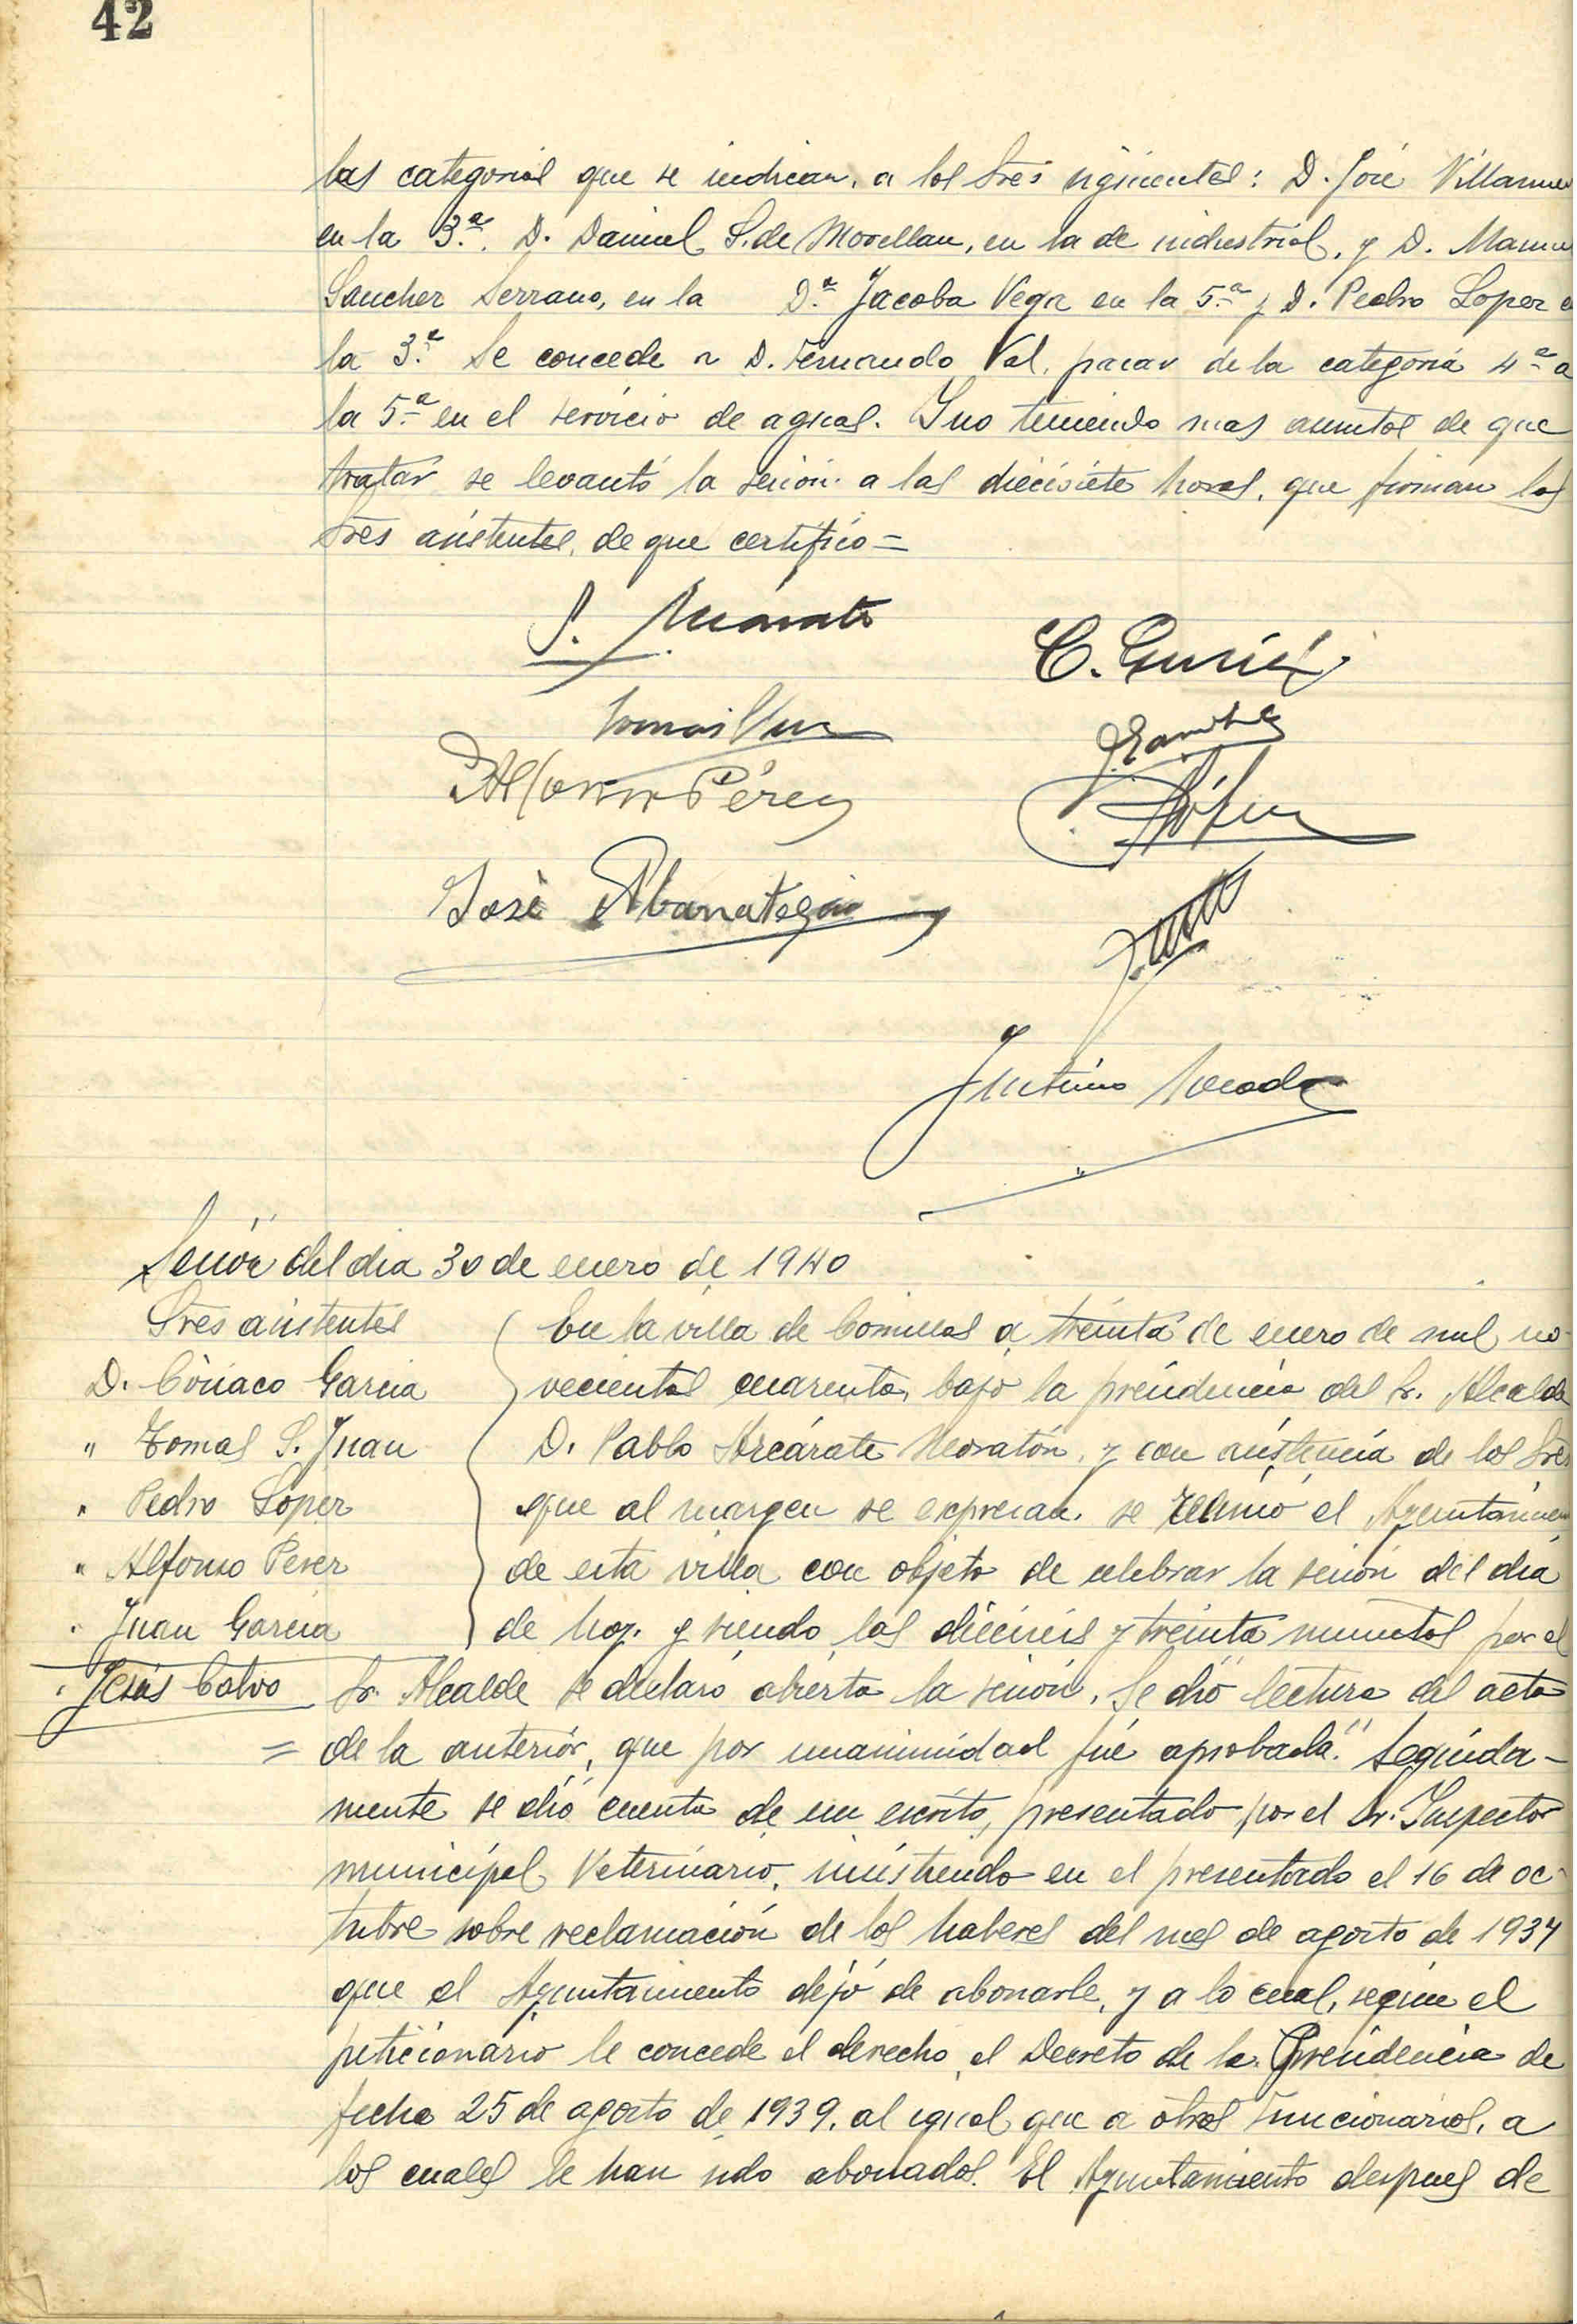 42
las categorias que se indican, a los Sres siguientes: D. José Villanue
en la 3.ª D. Daniel S. de Movellan, en la de industrial, y D. Manu
Sanchez Serrano, en la D.ª Jacoba Vega en la 5.ª y D. Pedro Lopez e
la 3.ª Se concede a D. Fernando Val, pasar de la categoria 4ª a
la 5.ª en el servicio de aguas. Y no teniendo mas asuntos de que
tratar se levantó la sesión a las diecisiete horas, que firman los
Sres asistentes, de que certifico =
C. García
Alfonso Pérez
José Abarrategui
Sesión del dia 30 de enero de 1940
Sres asistentes
D. Ciriaco Garcia
" Tomas S. Juan
" Pedro Lopez
" Alfonso Perez
" Juan Garcia
" Jesús Calvo
En la villa de Comillas a treinta de enero de mil no-
vecientos cuarenta, bajo la presidencia del Sr. Alcalde
D. Pablo Azcárate Moratón, y con asistencia de los Sres
que al margen se expresan, se reunió el Ayuntamien
de esta villa con objeto de celebrar la sesión del día
de hoy, y siendo las dieciseis y treinta minutos por el
Sr. Alcalde se declaró abierta la sesión. Se dió lectura del acta
= de la anterior, que por unanimidad fué aprobada." Seguida-
mente se dió cuenta de un escrito, presentado por el Sr. Inspector
municipal Veterinario, insistiendo en el presentado el 16 de oc-
tubre sobre reclamación de los haberes del mes de agosto de 1937
que el Ayuntamiento dejó de abonarle, y a lo cual, segun el
peticionario le concede el derecho, el Decreto de la Presidencia de
fecha 25 de agosto de 1939, al igual que a otros funcionarios, a
los cuales le han sido abonados. El Ayuntamiento despues de